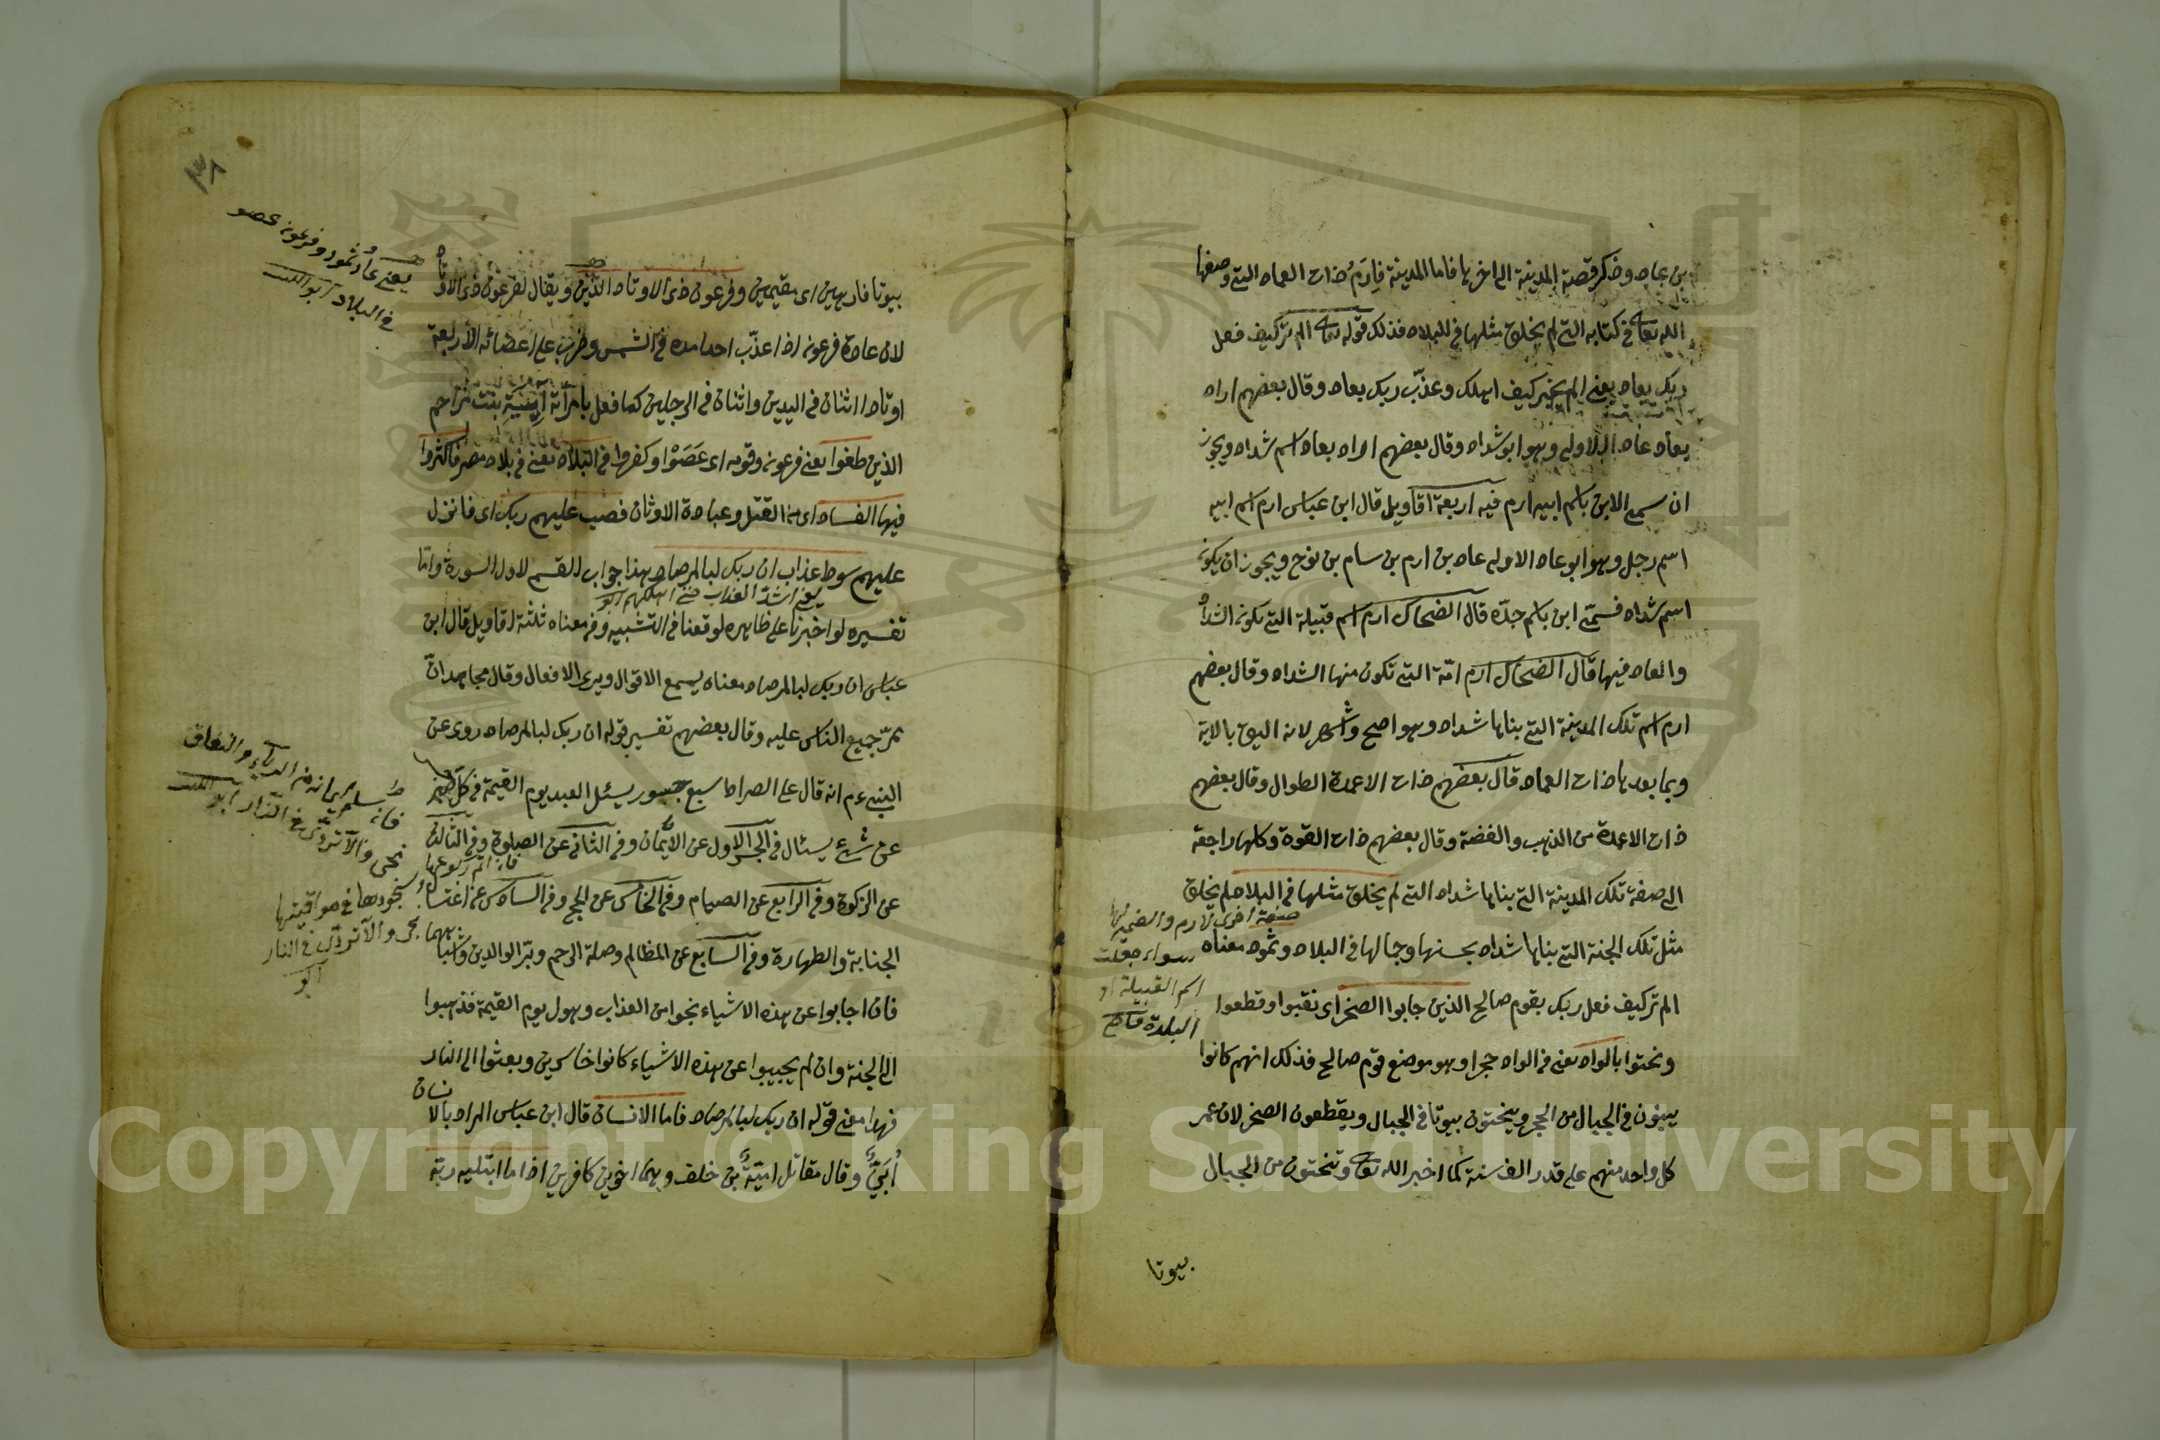 بن عاد وذكر قصة المدينة الى اخرها فاما المدينة فارم ذات العماد التي وصفها
الله تعا في كتابه التي لم يخلق مثلها في البلاد فذلك قوله تعا الم تر كيف فعل
ربك بعاد يعني الم يخبر كيف اهلك وعذّب ربك بعاد وقال بعضهم اراد
بعاد عاد الاولى وهو ابو شداد وقال بعضهم اراد بعاد اسم شداد ويجوز
ان سمي الابن باسم ابيه ارم فيه اربعة اقاويل قال ابن عباس ارم اسم ابيه
اسم رجل وهو ابو عاد الاولى عاد بن ارم بن سام بن نوح ويجوز ان يكون
اسم شداد فسمّي ابن باسم جدّه قال الضحاك ارم اسم قبيلة التي يكون الشداد
والعاد فيها قال الضحاك ارم امّة التي تكون منها الشداد وقال بعضهم
ارم اسم تلك المدينة التي بناها شداد وهو اصح واشهر لانه اليق بالاية
وبما بعدها ذات العماد قال بعضهم ذات الاعمدة الطوال وقال بعضهم
ذات الاعمدة من الذهب والفضة وقال بعضهم ذات القوة وكلها راجعة
الى صفة تلك المدينة التي بناها شداد التي لم يخلق مثلها في البلاد لم يخلق
صفة اخرى لارم والضمير لها
مثل تلك الجنة التي بناها شداد بحسنها وجمالها في البلاد وثمود معناه
سواء جعلت
اسم القبيلة او
البلدة
الم تر كيف فعل ربك بقوم صالح الذين جابوا الصخر اى نقبوا وقطعوا
ونحتوا بالواد يعني في الواد حجرا وهو موضع قوم صالح فذلك انهم كانوا
يبنون في الجبال من الحجر وينحتون بيوتا في الجبال ويقطعون الصخر لان عمر
كل واحد منهم على قدر الف سنة كما اخبر الله تعا وتنحتون من الجبال
بيوتا
٣٨
يعني عاد وثمود وفرعون عصو
في البلاد ابو الليث
بيوتا فارهين اى مقيمين وفرعون ذى الاوتاد الذين ويقال لفرعون ذى الاوتاد
لان عادة فرعون اذا عذّب احدا مده في الشمس وضرب على اعضائه الأربعة
اوتادا اثنان في اليدين واثنان في الرجلين كما فعل بامرأته آسية بنت مزاحم
الذين طغوا يعني فرعون وقومه اى عَصَوْا وكفروا في البلاد يعني في بلاد مصر فاكثروا
فيها الفساد اى القتل وعبادة الاوثان فصب عليهم ربك اى فانزل
عليهم سوط عذاب ان ربك لبالمرصاد هذا جواب القسم لاول السورة وامّا
يعني اشدّ العذاب حتى اهلكهم
تفسيره لو اخبرنا على ظاهره لوقعنا في التشبيه وفي معناه ثلثة اقاويل قال ابن
عباس ان ربك لبالمرصاد معناه يسمع الاقوال ويرى الافعال وقال مجاهد انّ
ممرّ جميع الناس عليه وقال بعضهم تفسير قوله ان ربك لبالمرصاد روى عن
النبي ءم انه قال على الصراط سبع جسور يسئل العبد يوم القيمة في كل
عن شيء يسئال في الجسر الاول عن الايمان وفي الثاني عن الصلوة وفي الثالث
عن الزكوة وفي الرابع عن الصيام وفي الخامس عن الحج وفي السادس عن اغتسال
الجنابة والطهارة وفي السابع عن المظالم وصلة الرحم وبرّ الوالدين
فان اجابوا عن هذه الاشياء نجوا من العذاب وهول يوم القيمة فذهبوا
الى الجنة وان لم يجيبوا عن هذه الاشياء كانوا خاسرين وبعثوا الى النار
فهذا معنى قوله ان ربك لبالمرصاد فاما الانسان قال ابن عباس المراد بالانسان
اُبَيّ وقال مقاتل اميّة بن خلف وهما اخوين كافرين اذا ما ابتليه ربه
فان سلم ايمانه من الرياء والنفاق
نجى والا تردّى في النار ابو الليث
فان اتم ركوعها
وسجودها في مواقيتها
نجى والا تردّى في النار
Copyright © King Saud University